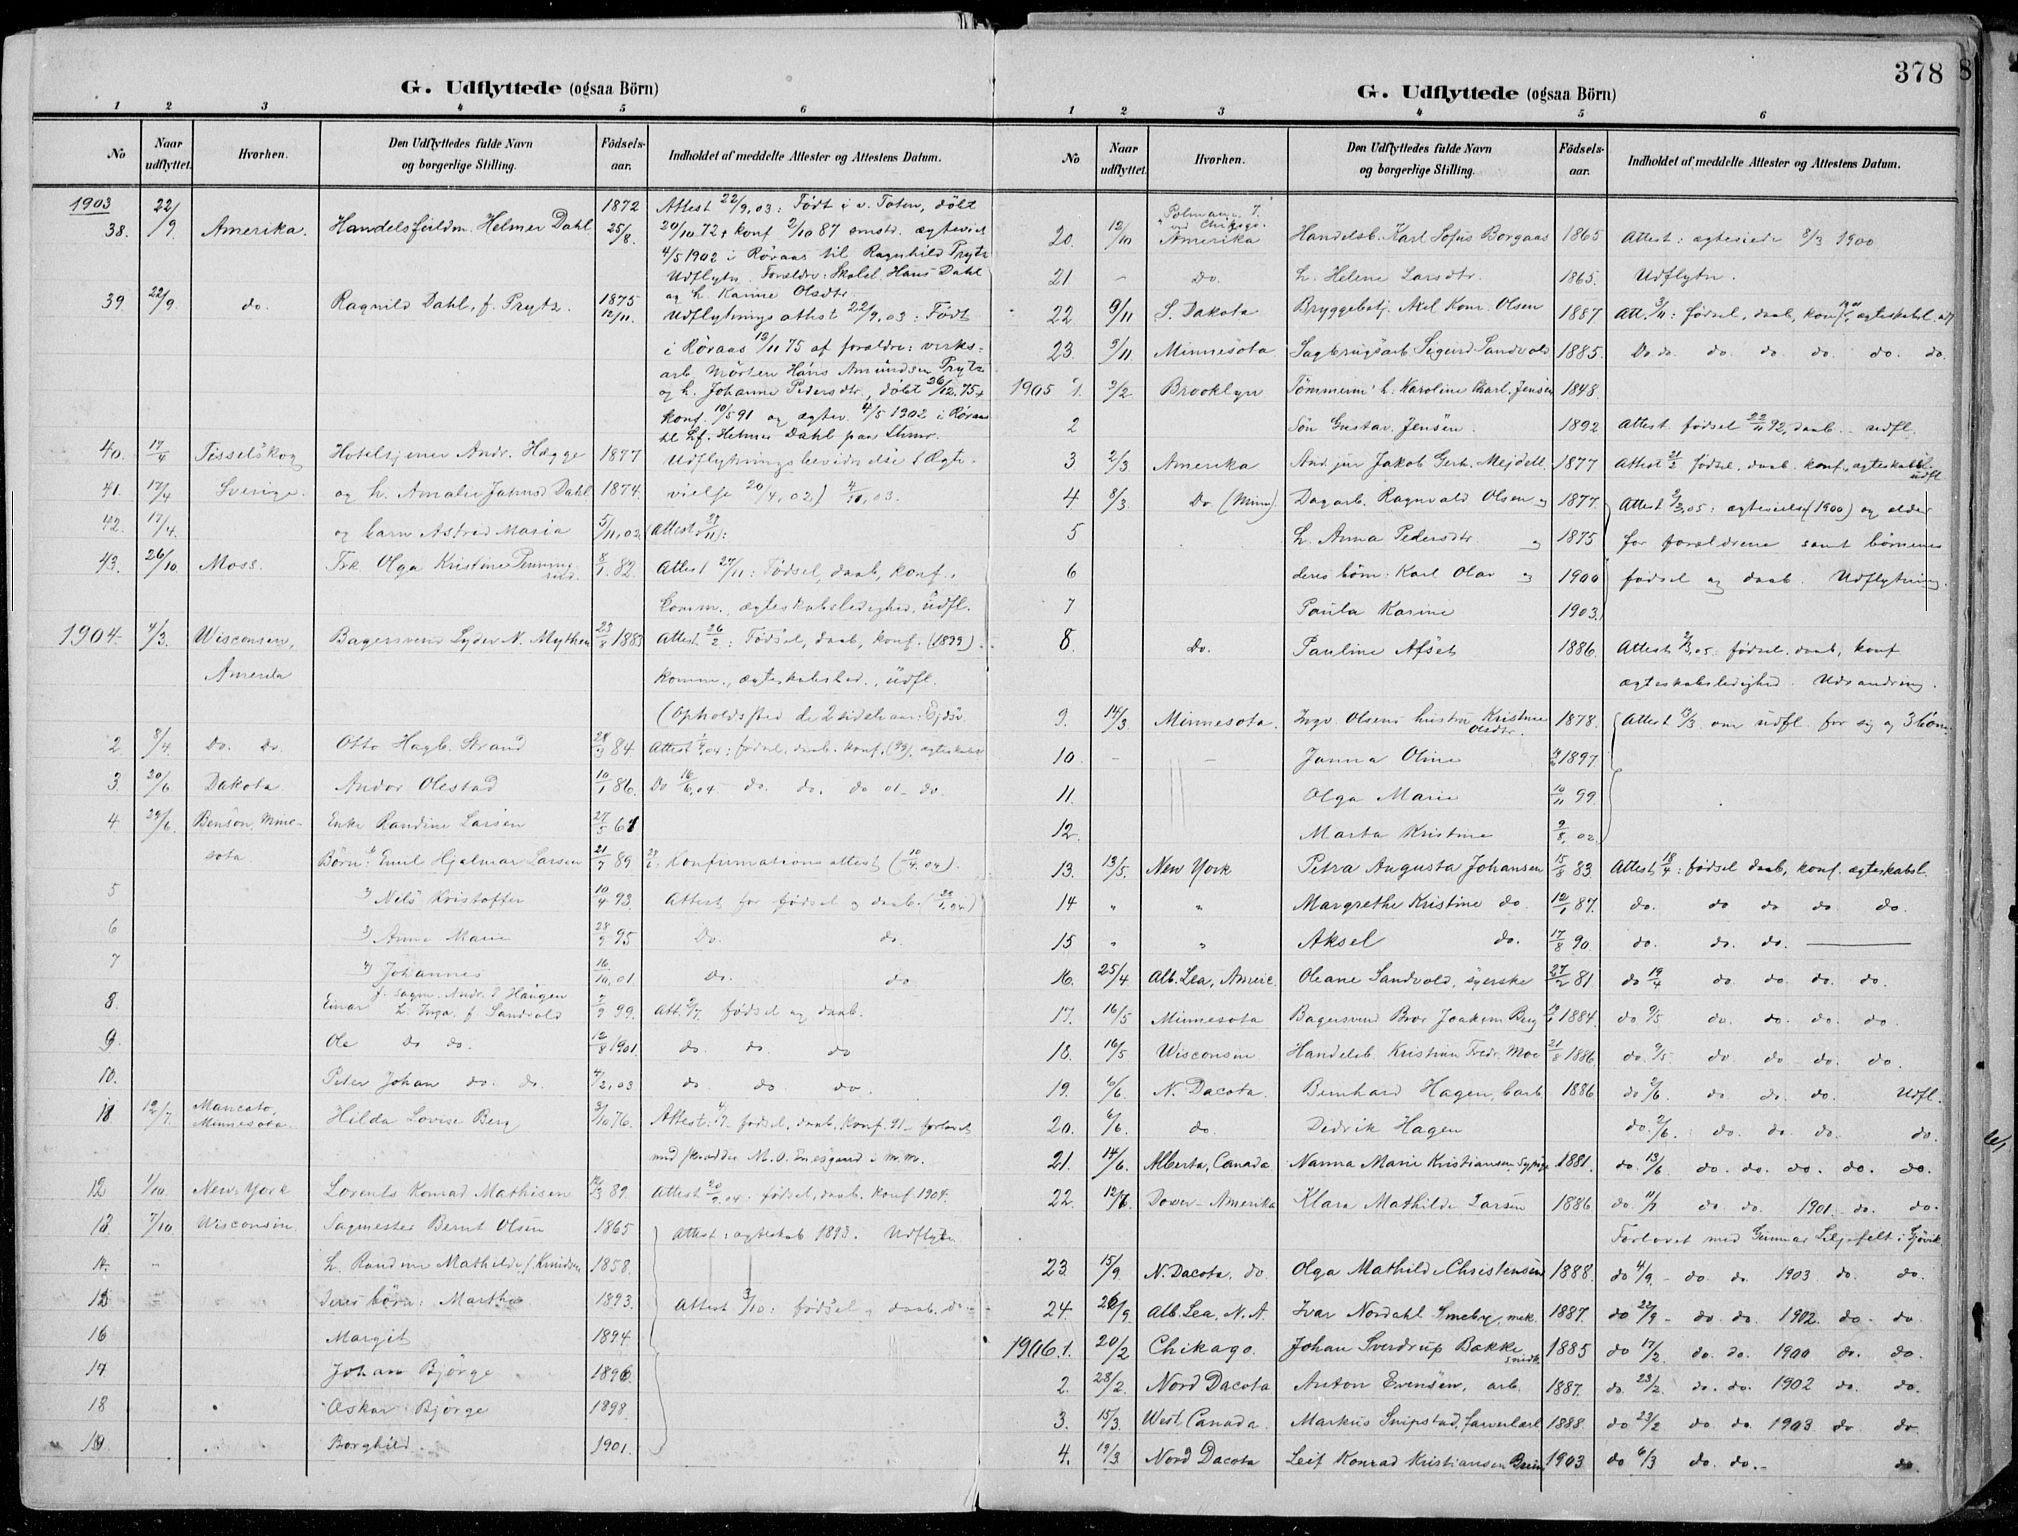 G. Udflyttede (ogsaa Börn)
1 2 3 4 5 6
No Naar udflyttet. Hvorhen. Den Udflyttedes fulde Navn og borgerlige Stilling. Födsels-aar. Indholdet af meddelte Attester og Attestens Datum.
1903 22/9 1872 Attest 22/9, 03: Født i v. Toten, døbt
38. Amerika. Handelsfuldm. Helmer Dahl 25/8. 20/10 72 + konf 2/10 87 smstd. ægteviet
4/5 1902 i Røraas til Ragnhild Prytz
Udflytn. Forældre: Skolel. Hans Dahl
og h. Karine Olsdtr.
39 22/9. do. Ragnild Dahl, f. Prytz. 1875 12/11. Udflytnings attest 22/9, 03: Født
i Røraas 12/11 75 af forældre: verks-
arb. Morten Hans Amundsen Prytz
og h. Johanne Pedersdtr, døbt 26/12, 75 +
konf. 10/5 91 og ægtev. 4/5 1902 i Røraas
til Hf. Helmer Dahl paa Lhmr.
40. 17/4 Tisselskog Hotelsjener Andr. Hægge 1877 Udflytningsbevidnelse (Ægte-
41. 17/4 Sverige. og h. Amalie Jahnsd Dahl 1874. vielse 20/4, 02) 4/11, 03.
42. 17/4. og barn Astrid Maria 5/11, 02 Attest
43. 26/10 Moss. Frk. Olga Kristine Penning 8/1 82. Attest 27/11: Fødsel, daab, konf.,
komm., ægteskabsledighed, udfl.
1904. 4/3. Wisconsin, Bagersvend Syder N. Mythen 23/8 1883 Attest 26/2: Fødsel, daab, konf. (1899).
Amerika komm., ægteskabsled., udfl.
(Opholdssted de 2 sidste aar: Ejdsv.
2 8/4. Do. Do. Otto Hagb. Strand 28/9 84 Attest 04: fødsel, daab, konf. (99), ægteskabsl
3. 20/6 Dakota. Andor Olestad 10/1 86. Do 16/6, 04 - do. do. do
4 24/6. Benson, Mine- Enke Randine Larsen 27/5 61
sota Børn: 1) Emil Hjalmar Larsen 21/9 89 Konfirmations attest (10/4. 04).
5 2) Nils Kristoffer 10/4 93. Attest for fødsel og daab.
6 3) Anna Marie 28/9 95 Do. do.
7 4) Johannes 16/10, 01. Do. do
8. Einar f. sagm. Andr. P. Haugen h. Inga f. Sandvold 2/9 99. Att. 2/7. fødsel og daab.
9. Ole do do. 12/8 1901. do. do. do
10. Peter Johan do. do. 4/2, 03 do. do. do.
11 12/7. Mancato, Minnesota. Hilda Lovise Berg 3/10 76. Attest: 4/7 fødsel, daab, konf. 91 - forlovet
med skrædder M. O. Enesgaard i M. M.
12 1/10. New-York Lorents Konrad Mathisen 89. Attest 20/9, 04: fødsel, daab, konf. 1904.
13 7/10 Wisconsin. Sagmester Bernt Olsen 1865 Attest: ægteskab 1893. Udflytn
14. " h. Randine Mathilde f. Knudsen 1858.
15 deres børn: Martha 1893. Attest 3/10: fødsel & daab. do
16 Margit 1894.
17 Johan Bjørge 1896.
18 Oskar Bjørge 1898.
19 Borghild. 1901.
378
G. Udflyttede (ogsaa Börn)
1 2 3 4 5 6
No Naar udflyttet. Hvorhen. Den Udflyttedes fulde Navn og borgerlige Stilling. Födsels-aar. Indholdet af meddelte Attester og Attestens Datum.
ved Chikago.
20. 12/10 Amerika Handelsb. Karl Sofus Borgaas 1865 Attest: ægteviede 8/3 1900
21 - do. h. Helene Larsdtr. 1865. Udflytn.
22 9/11 S. Dakota Bryggebetj. Axel Konr. Olsen 1887 Att. 3/11: fødsel, daab, konf, ægteskabsl.
23. 9/11 Minnesota Sagbrugsarb. Sigurd Sandvold 1885. Do. do. do. do. do. do. do.
1905 1. 2/2 Brooklyn Tømmerm. h. Karoline Charl. Jensen 1848.
2 Søn Gustav Jensen. 1892 Attest. fødsel 22/11 92, daab. - udfl.
3 2/3 Amerika And. jur. Jakob Gerh. Mejdell 1877 Attest 21/2 fødsel, daab. konf, ægteskabsl. udfl
4 8/3 Do (Minn) Dagarb. Ragnvald Olsen og 1877. Attest 05: ægtevielse (1900) og alder
5 h. Anna Pedersdtr og 1875 for forældrene samt børnenes
6 deres børn: Karl Olav og 1900 fødsel og daab. Udflytning.
7 Paula Karine 1903.
8. Do. Pauline Afset 1886. Attest 2/3, 05: fødsel, daab, konf
ægteskabsledighed. Udvandring.
9. 14/3 Minnesota. Ingv. Olsens hustru Kristine Olsdtr. 1878. Attest 13/3 om udfl. for sig og 3 børn
10. - - Janna Oline 1897.
11. Olga Marie 10/11 99.
12. Marta Kristine 9/8, 02.
13. 13/5. New York Petra Augusta Johansen 15/8 83 Attest 18/4: fødsel, daab, konf. ægteskabsl.
14 " " Margrethe Kristine do. 12/1 87. do. do do do. do.
15 " " Aksel do. 17/8 90. do. do. do.
16. 25/4 Alb. Lea, Ameri. Oleane Sandvold, syerske 27/2 81. do 19/4 do. do. do. do.
17. 16/5 Minnesota Bagersvend Bror Joakim Berg 1884. do 9/5 do. do. do. do.
18. 16/5 Wisconsin Handelsb. Kristian Fredr. Moe 21/8 1886 do. 9/5 do do - do. do.
19. 6/6. N. Dacota. Bernhard Hagen, barb. 1886 do 2/6. do do. do. Udfl.
20. 6/6. do. Didrik Hagen do. 2/6. do. do. do. do.
21. 14/6. Alberta, Canada Nanna Marie Kristiansen Sypige 1881. do. 13/6 do. do. do. do. do.
22. 12/6. Dover - Amerika Klara Mathilde Larsen 1886 do do do. 1901. do. do.
Forlovet med Gunnar Liljefelt i Gjøvik.
23. 15/9. N. Dacota, do. Olga Mathilde Christensen 1888. do 4/9. - do do. 1903 do. do.
24. 26/9 Alb. Lea, N. A. Ivar Nordahl Smeby, mek. 1887. do 22/9 - do do. 1902. do - do.
1906. 1. 20/2 Chikago. Johan Sverdrup Bakke smidk. 1885 do 17/2. do. do. 1900 do. do.
2. 28/2. Nord Dacota Anton Evensen, arb. 1887. do. 23/2 do. do. 1902 do. do.
3. 15/3. West. Canada. Markus Snipstad, farverlærl 1888. do 23/2 do. do. 1903 do do.
4. 19/3. Nord Dacota Leif Konrad Kristiansen Brun 1903. do 6/3 do. do. - do.